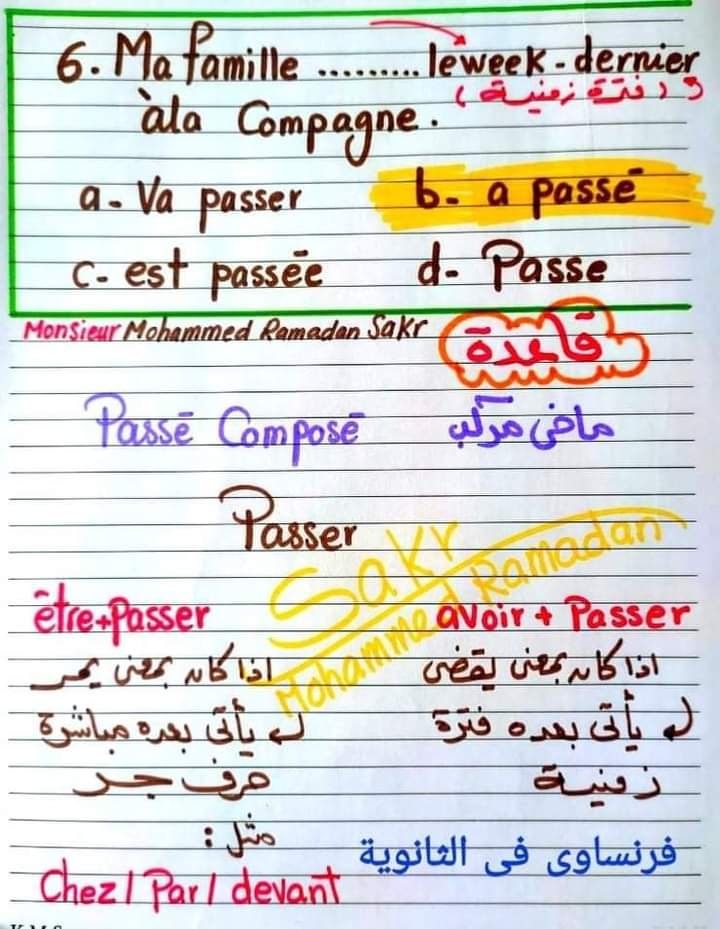 6. Ma famille ......... le week-dernier
( فترة زمنية )
àla Compagne.
a- Va passer b- a passē
c- est passēe d- Passe
Monsieur Mohammed Ramadan Sakr
قاعدة
Passē Composē ماضى مركب
Passer
Sakr
Mohammed Ramadan
être+Passer avoir + Passer
اذا كان بمعنى يمر اذا كان بمعنى يقضى
يأتى بعده مباشرة يأتى بعده فترة
حرف جر زمنية
مثل :
فرنساوى فى الثانوية
Chez / Par / devant